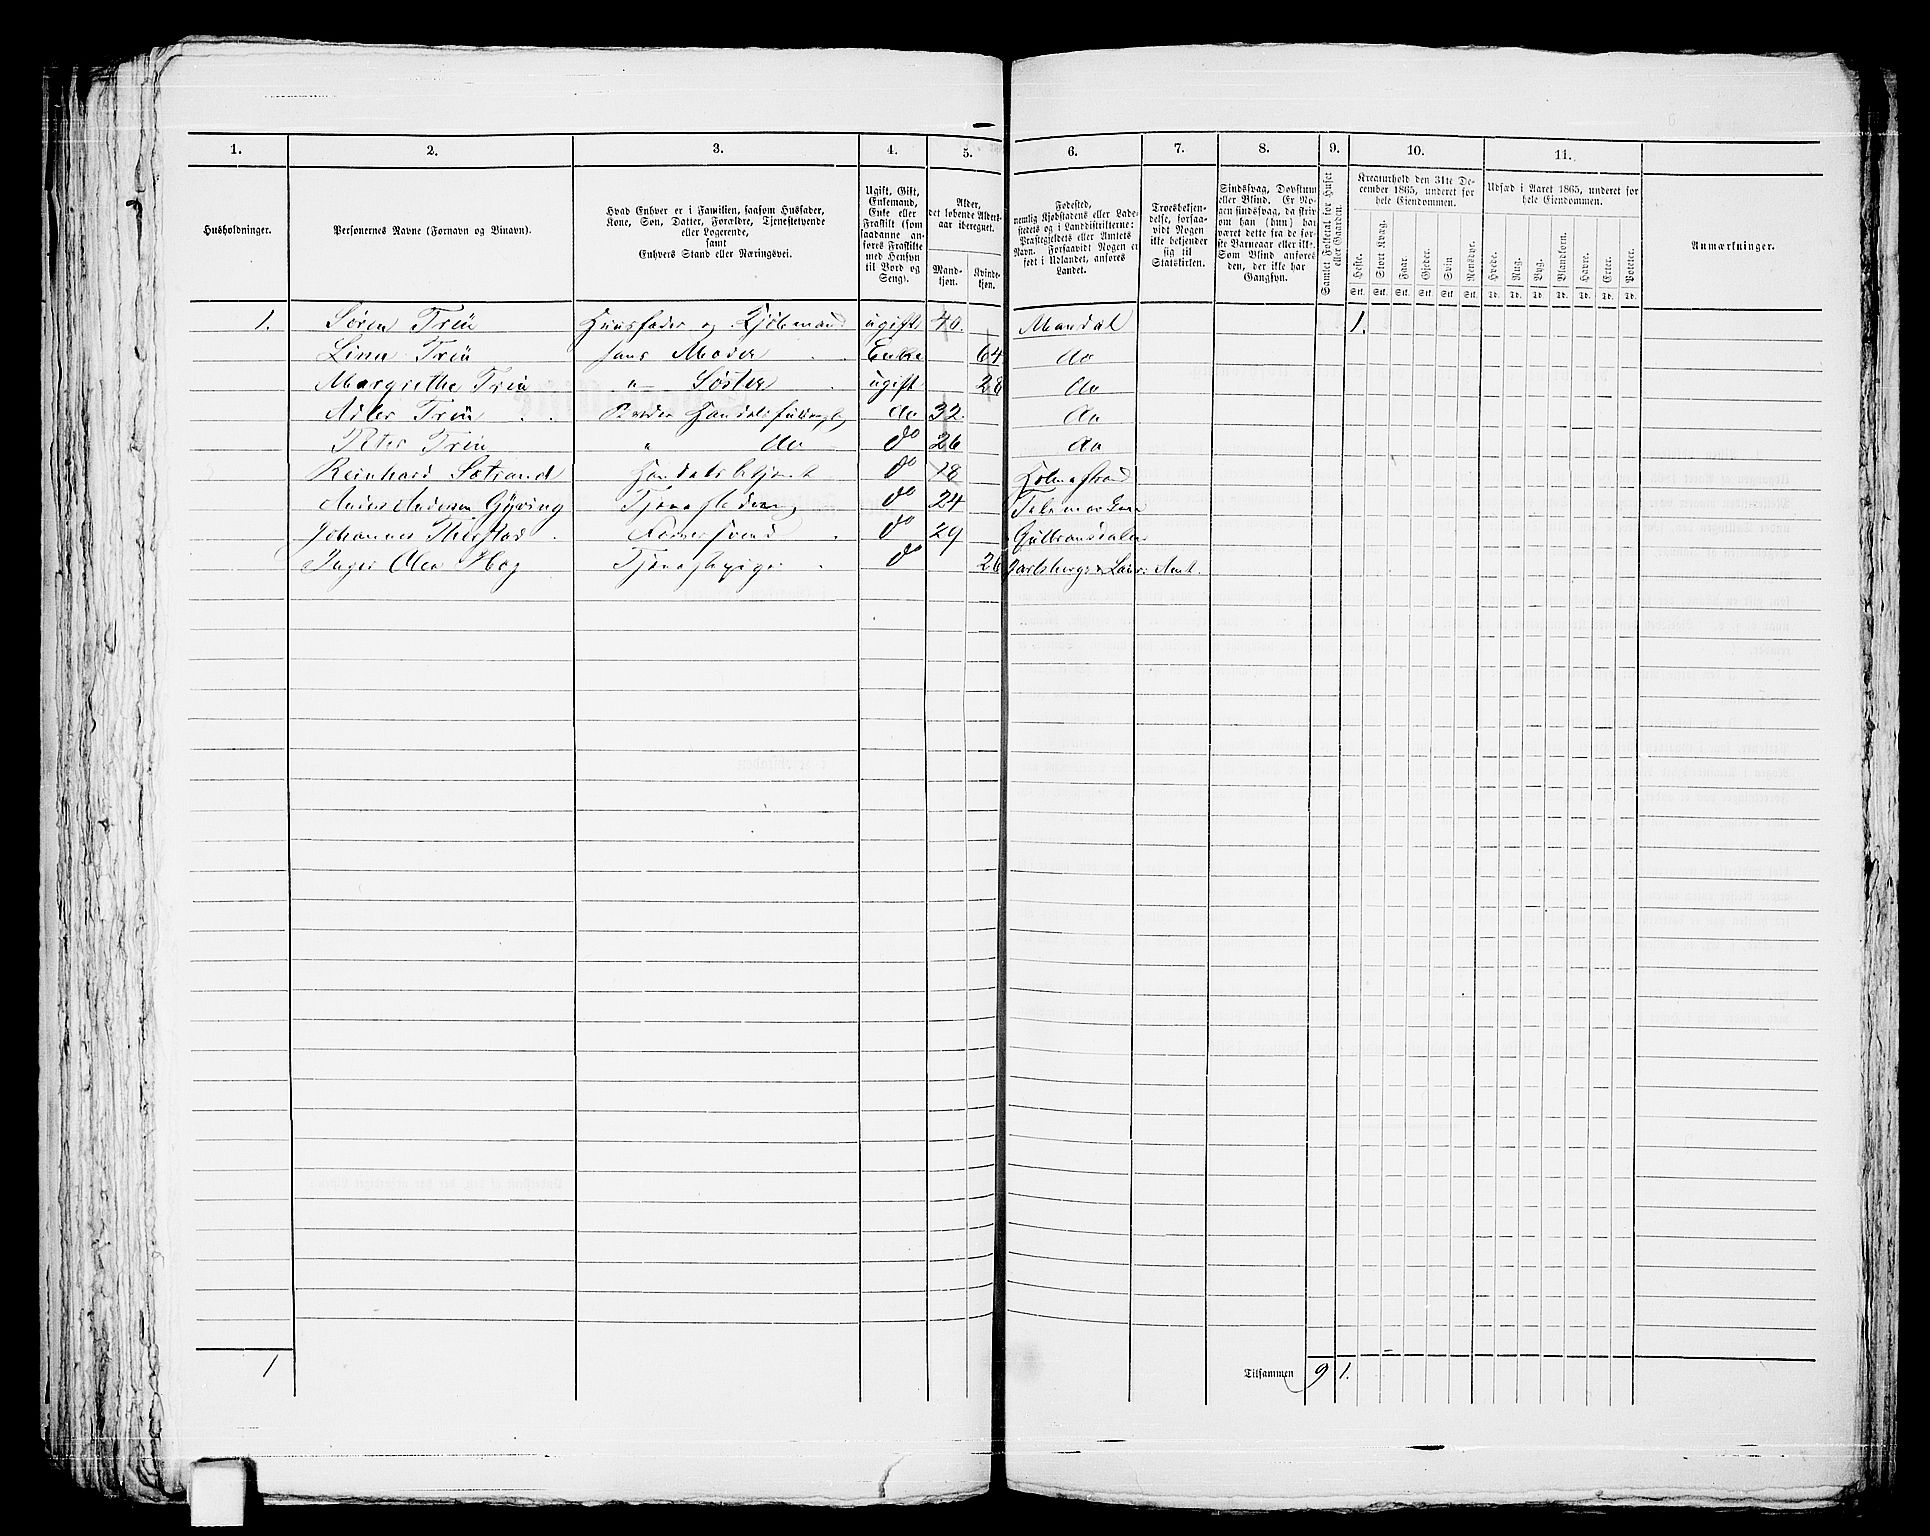 1. 2. 3. 4. 5. 6. 7. 8. 9. 10. 11.
Husholdninger.
Personernes Navne (Fornavn og Binavn).
Hvad Enhver er i Familien, saasom Husfader,
Kone, Søn, Datter, Forældre, Tjenestetyende
eller Logerende,
samt
Enhvers Stand eller Næringsvei.
Ugift, Gift,
Enkemand,
Enke eller
Fraskilt (som
saadanne an-
føres Fraskilte
med Hensyn
til Bord og
Seng).
Alder,
det løbende Alders-
aar iberegnet.
Mand-
kjøn.
Kvinde-
kjøn.
Fødested,
nemlig Kjøbstadens eller Lade-
stedets og i Landdistrikterne:
Præstegjeldets eller Amtets
Navn. Forsaavidt Nogen er
født i Udlandet, anføres
Landet.
Troesbekjen-
delse, forsaa-
vidt Nogen
ikke bekjender
sig til
Statskirken.
Sindssvag, Døvstum
eller Blind. Er No-
gen sindssvag, da skriv
om han (hun) har
været dette fra de før-
ste Barneaar eller ikke.
Som Blind anføres
den, der ikke har
Gangsyn.
Samlet Folketal for Huset
eller Gaarden.
Kreaturhold den 31te De-
cember 1865, underet for
hele Eiendommen.
Heste. Stort Kvæg. Faar. Gjeder. Svin Rensdyr.
Stk. Stk. Stk. Stk. Stk. Stk.
Udsæd i Aaret 1865, underet for
hele Eiendommen.
Hvede. Rug. Byg. Blandkorn. Havre. Erter. Poteter.
Td. Td. Td. Td. Td. Td. Td.
Anmærkninger.
1. Sören Trëu Huusfader og Kjöbmand ugift 40. Mandal 1.
Lina Trëu hans Moder Enke 64 do
Margrethe Trëu " Söster ugift 28 do
Trëu Broder do 32. do
Peter Trëu " do do 26 do
Reinhard do 18 Holmestrand
Anders Andersen Gjöving do 24
Johannes do 29 Gulbrandsdalen
Inger Olea Hog Tjenestepige do 26 Jarlsberg & Laur: Amt.
1 Tilsammen 9 1.